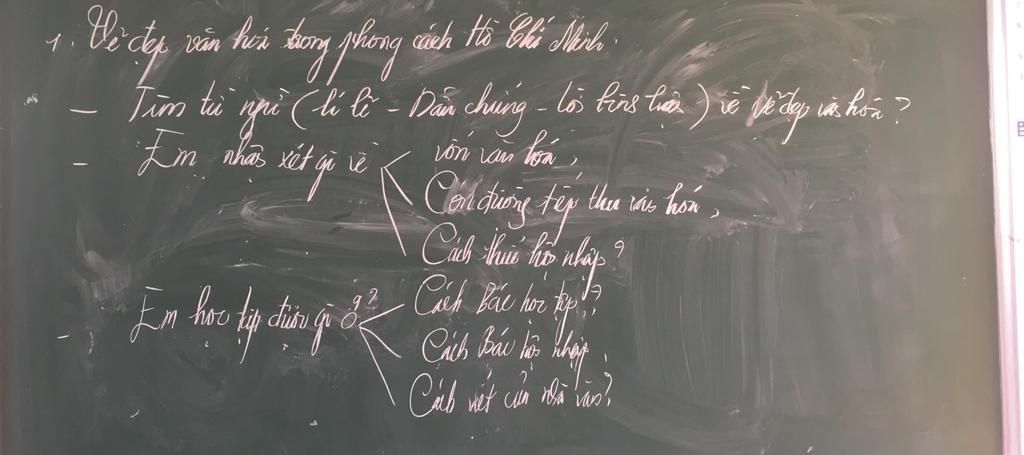 1. Vẻ đẹp văn hoá trong phong cách Hồ Chí Minh.
- Tìm từ ngữ (lí lẽ - Dẫn chứng - lời bình luận) về vẻ đẹp văn hóa?
- Em nhận xét gì về
vốn văn hoá,
Con đường tiếp thu văn hóa,
Cách thức hội nhập?
- Em học tập được gì ở?
Cách Bác học tập,?
Cách Bác hội nhập,
Cách viết của nhà văn?